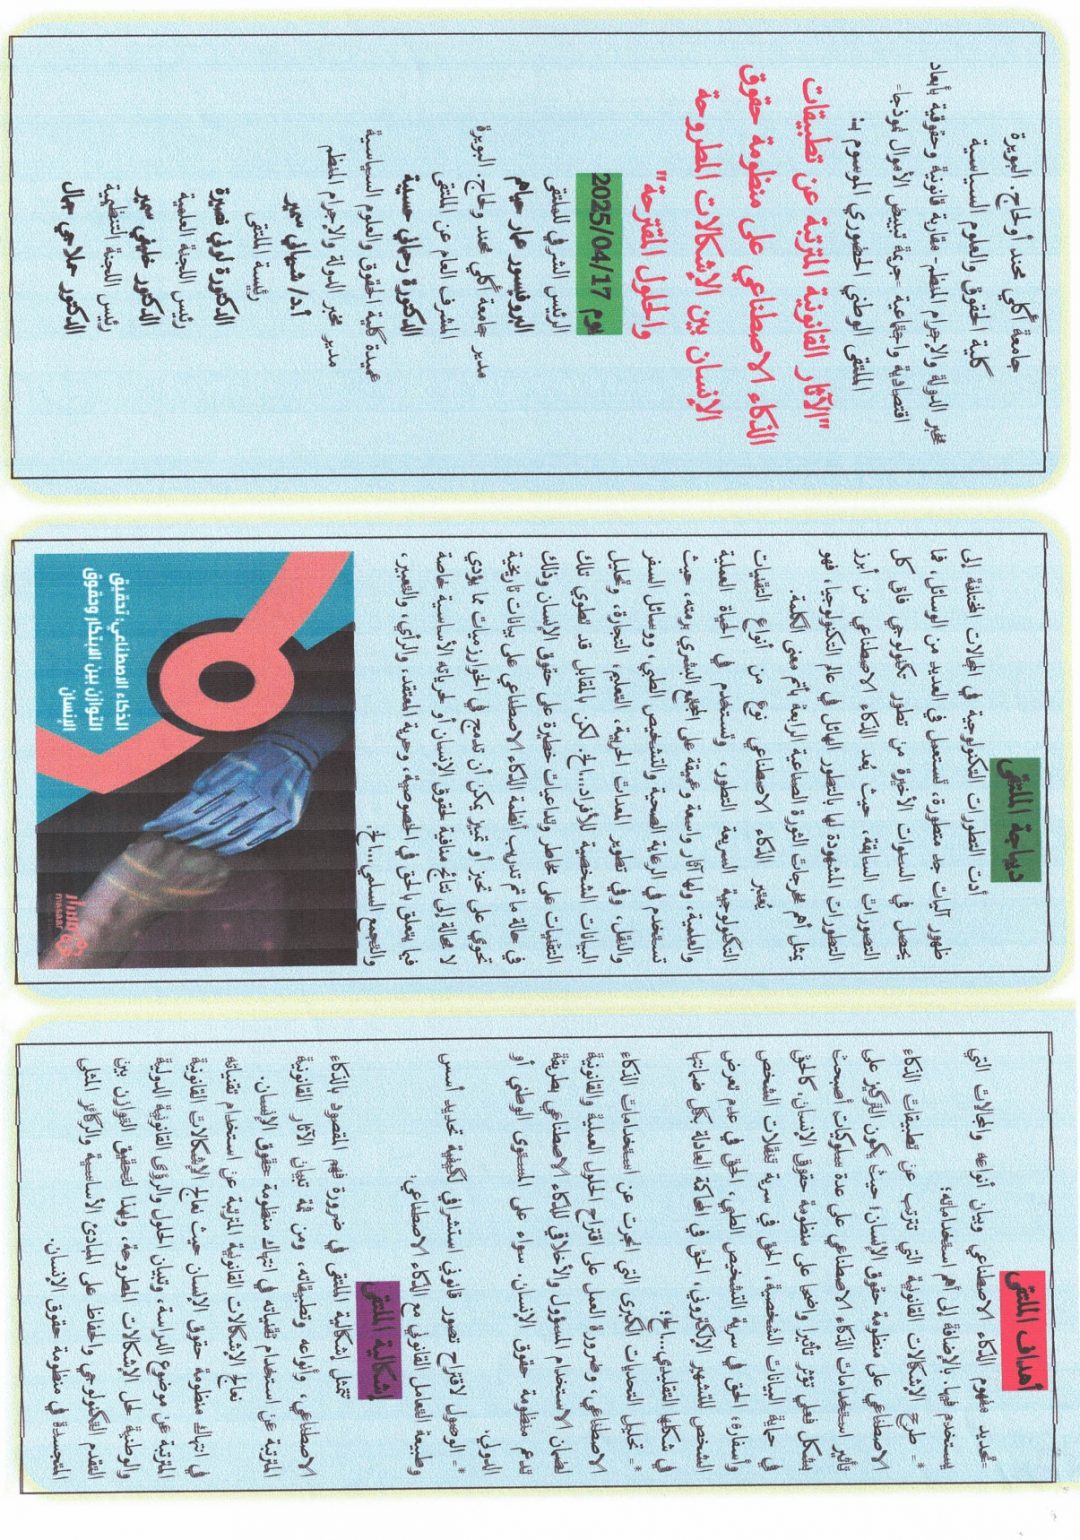 جامعة أكلي محند أولحاج. البويرة
كلية الحقوق والعلوم السياسية
مخبر الدولة والإجرام المنظم- مقاربة قانونية وحقوقية بأبعاد
اقتصادية واجتماعية -جريمة تبييض الأموال نموذجا-
الملتقى الوطني الحضوري الموسوم بـ:
"الآثار القانونية المترتبة عن تطبيقات
الذكاء الاصطناعي على منظومة حقوق
الإنسان بين الإشكالات المطروحة
والحلول المقترحة"
يوم 2025/04/17
الرئيس الشرفي للملتقى
البروفسور عمار حيام
مدير جامعة أكلي محند ولحاج. البويرة
المشرف العام عن الملتقى
الدكتورة رحماني حسيبة
عميدة كلية الحقوق والعلوم السياسية
مدير مخبر الدولة والإجرام المنظم
أ.د/ شيهاني سمير
رئيسة الملتقى
الدكتورة لوني نصيرة
رئيس اللجنة العلمية
الدكتور خليفي سمير
رئيس اللجنة التنظيمية
الدكتور حملاجي جمال
ديباجة الملتقى
أدت التطورات التكنولوجية في المجالات المختلفة إلى
ظهور آليات جد متطورة، تُستعمل في العديد من الوسائل، فما
يحصل في السنوات الأخيرة من تطور تكنولوجي فاق كل
التصورات السابقة، حيث يُعد الذكاء الاصطناعي من أبرز
التطورات المشهودة لها بالتطور الهائل في عالم التكنولوجيا، فهو
يمثل أهم مخرجات الثورة الصناعية الرابعة بأتم معنى الكلمة.
يُعتبر الذكاء الاصطناعي نوع من أنواع التقنيات
التكنولوجية السريعة التطور، وتستخدم في الحياة العملية
والعلمية، ولها آثار واسعة وعميقة على المجتمع البشري برمته، حيث
تستخدم في الرعاية الصحية والتشخيص الطبي، ووسائل السفر
والنقل، وفي تطوير المعدات الحربية، التعليم، التجارة، وتحليل
البيانات الشخصية للأفراد...الخ. لكن بالمقابل قد تطوي تلك
التقنيات على مخاطر وتداعيات خطيرة على حقوق الإنسان وذلك
في حالة ما تم تدريب أنظمة الذكاء الاصطناعي على بيانات تاريخية
تحوي على تحيز أو تمييز يمكن أن تدمج في الخوارزميات مما يؤدي
لا محالة إلى نتائج منافية لحقوق الإنسان أو لحرياته الأساسية خاصة
فيما يتعلق بالحق في الخصوصية، وحرية المعتقد، والرأي، والتعبير،
والتجمع السلمي...الخ.
الذكاء الاصطناعي: تحقيق
التوازن بين الابتكار وحقوق
الإنسان
مسار
masaar
أهداف الملتقى
-تحديد مفهوم الذكاء الاصطناعي وبيان أنواعه والمجالات التي
يستخدم فيها. بالإضافة إلى أهم استخداماته؛
-ـ طرح الإشكالات القانونية التي تترتب عن تطبيقات الذكاء
الاصطناعي على منظومة حقوق الإنسان؛ حيث يكون التركيز على
تأثير استخدامات الذكاء الاصطناعي على عدة سلوكات أصبحت
بشكل فعلي تؤثر تأثير واضحا على منظومة حقوق الإنسان. كالحق
في حماية البيانات الشخصية، الحق في سرية تنقلات الشخص
وأسفاره؛ الحق في سرية التشخيص الطبي، الحق في عدم تعرض
الشخص للتشهير الإلكتروني، الحق في المحاكمة العادلة بكل ضماناتها
في شكلها التقليدي...الخ؛
-ـ تحليل التحديات الكبرى التي انجرت عن استخدامات الذكاء
الاصطناعي، وضرورة العمل على اقتراح الحلول العملية والقانونية
لضمان الاستخدام المسؤول والأخلاقي للذكاء الاصطناعي بطريقة
تدعم منظومة حقوق الإنسان. سواء على المستوى الوطني أو
الدولي.
-ـ الوصول لاقتراح تصور قانوني استشرافي لكيفية تحديد أسس
وطبيعة التعامل القانوني مع الذكاء الاصطناعي.
إشكالية الملتقى
تتمثل إشكالية الملتقى في ضرورة فهم المقصود بالذكاء
الاصطناعي، وأنواعه وتطبيقاته، ومن ثمة تبيان الآثار القانونية
المترتبة عن استخدام تقنياته في انتهاك منظومة حقوق الإنسان.
نعالج الإشكالات القانونية المترتبة عن استخدام تقنياته
في انتهاك منظومة حقوق الإنسان حيث نعالج الإشكالات القانونية
المترتبة عن موضوع الدراسة، وتبيان الحلول والرؤى القانونية الدولية
والوطنية لحل الإشكالات المطروحة، ولهذا لتحقيق التوازن بين
التقدم التكنولوجي والحفاظ على المبادئ الأساسية والركائز المثلى
المتجسدة في منظومة حقوق الإنسان.